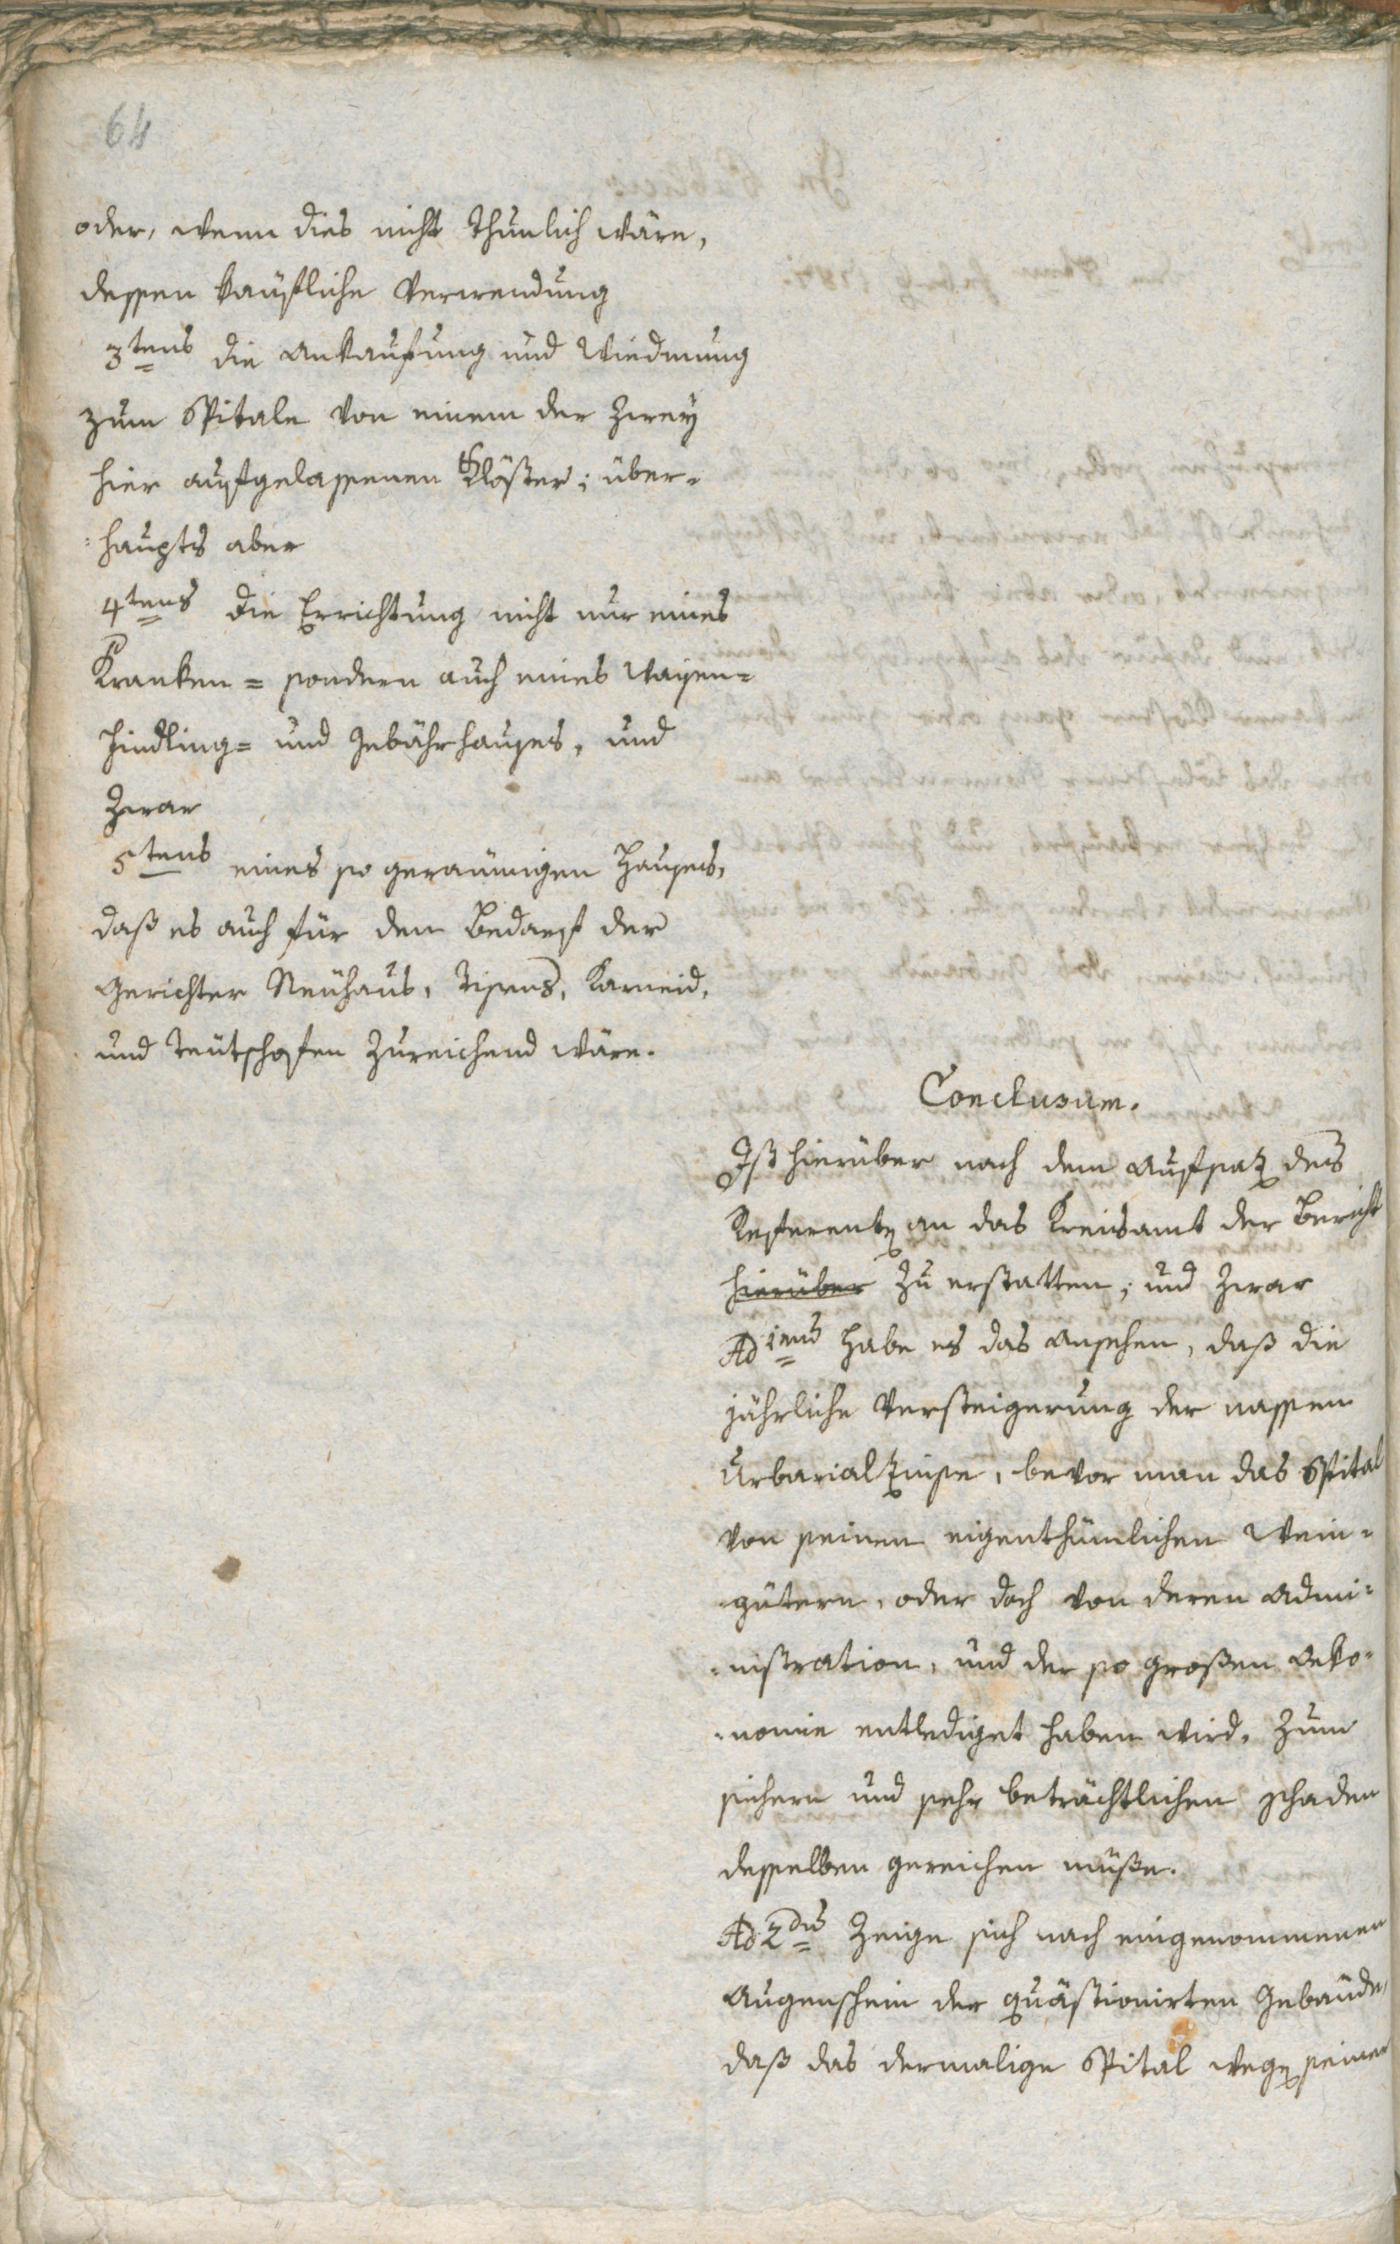 64
oder, wenn dies nicht thunlich wäre,
dessen käufliche Verwendung
3tens die Ankaufung und Wiedmung
zum Spitale von einem der zwey
hier aufgelassenen Klöster; über-
haupts aber
4tens die Errichtung nicht nur eines
Kranken= sondern auch eines Waysen=
Findling= und Gebährhauses, und
zwar
5tens eines so geraümigen Hauses,
daß es auch für den Bedarf der
Gerichter Neühaus, Tisens, Karneid,
und Teütschofen zureichend wäre.
Conclusum.
Ist hierüber nach dem Aufsatz des
Referenten an das Kreisamt der Bericht
hierüber zu erstatten; und zwar
Ad 1mus habe es das Ansehen, daß die
jährliche Versteigerung der nassen
Urbarialzinse, bevor man das Spital
von seinen eigenthümlichen Wein-
gütern, oder doch von deren Admi-
nistration, und der so großen Oeko-
nomie entlediget haben wird, zum
sichern und sehr beträchtlichen Schaden
desselben gereichen müße.
Ad 2dus Zeige sich nach eingenommenen
Augenschein der quästionirten Gebäude,
daß das dermalige Spital wegen seiner